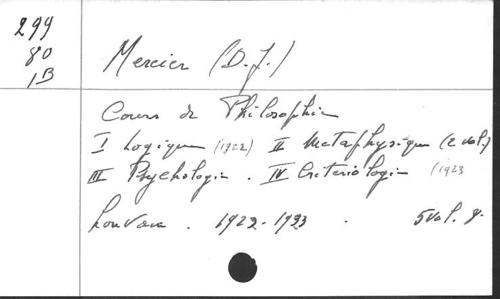 299
80
1B
Mercier (D.J.)
Cours de Philosophie
I Logique (1922) II Metaphysique (2 vol.)
III Psychologie. IV Criteriologie (1923
Louvain. 1922-1923. 5 vol. 8.